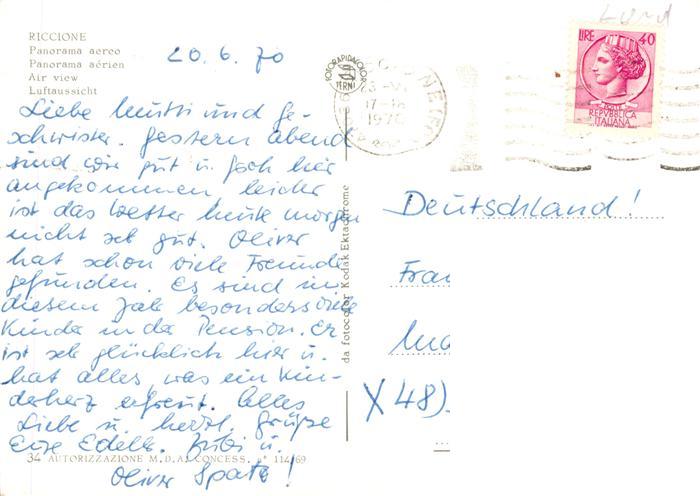 RICCIONE
Panorama aereo
Panorama aérien
Air view
Luftaussicht
20.6.70
Liebe Mutti und Ge-
schwister. Gestern abend
sind wir gut u. hier
angekommen leider
ist das Wetter heute morgen
nicht seh gut. Oliver
hat schon viele Freunde
gefunden. Es sind in
diesem Jahr besonders viele
Kinder in der Pension. Er
ist seh glücklich hier u.
hat alles, was ein Kin-
derherz erfreut. Alles
Liebe u. herzl. Grüße
Eure u.
Oliver Spatz!
34 AUTORIZZAZIONE M.D.A. CONCESS. n° 114/69
FOTORAPIDACOLOR
TERNI
da fotocolor Kodak Ektachrome
23-VI
17-18
1970
LIRE 40
POSTE
REPVBBLICA
ITALIANA
Deutschland!
Frau
X 48)